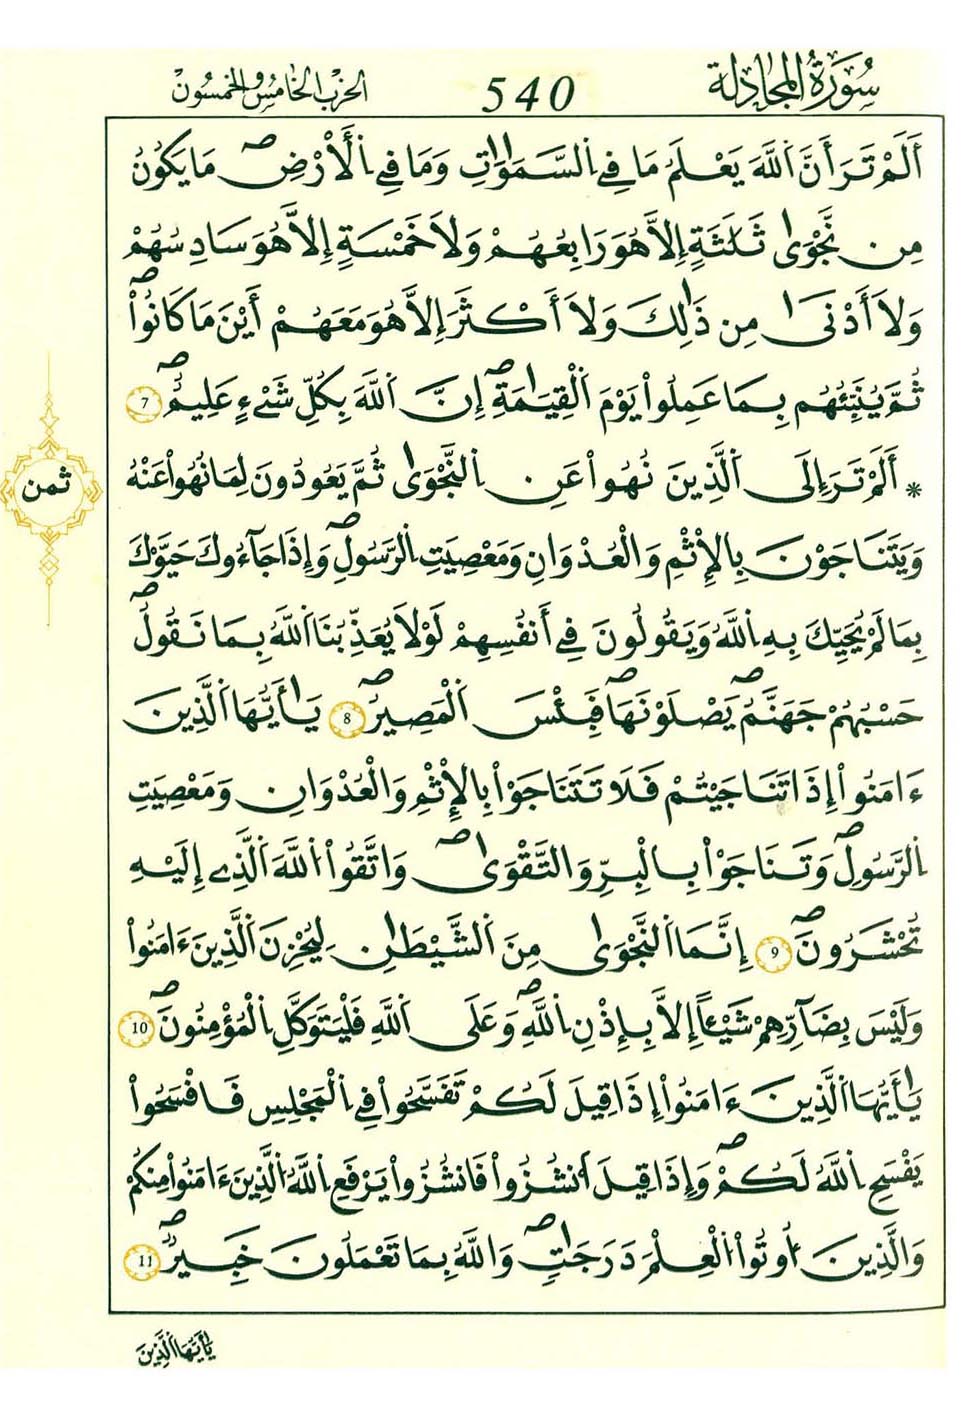 سُورَةُ المُجَادِلَة
540
الحزب الخامس والخمسون
أَلَمْ تَرَ أَنَّ اَ۬للَّهَ يَعْلَمُ مَا فِے اِ۬لسَّمَٰوَٰتِ وَمَا فِے اِ۬لْأَرْضِۖ مَا يَكُونُ
مِن نَّجْوَىٰ ثَلَٰثَةٍ إِلَّا هُوَ رَابِعُهُمْ وَلَا خَمْسَةٍ إِلَّا هُوَ سَادِسُهُمْ
وَلَا أَدْنَىٰ مِن ذَٰلِكَ وَلَا أَكْثَرَ إِلَّا هُوَ مَعَهُمْ أَيْنَ مَا كَانُواْۖ
ثُمَّ يُنَبِّئُهُم بِمَا عَمِلُواْ يَوْمَ اَ۬لْقِيَٰمَةِۖ إِنَّ اَ۬للَّهَ بِكُلِّ شَےْءٍ عَلِيمٌۖ 7
* أَلَمْ تَرَ إِلَى اَ۬لَّذِينَ نُهُواْ عَنِ اِ۬لنَّجْوَىٰ ثُمَّ يَعُودُونَ لِمَا نُهُواْ عَنْهُ
ثمن
وَيَتَنَاجَوْنَ بِالْإِثْمِ وَالْعُدْوَانِ وَمَعْصِيَتِ اِ۬لرَّسُولِۖ وَإِذَا جَآءُوكَ حَيَّوْكَ
بِمَا لَمْ يُحَيِّكَ بِهِ اِ۬للَّهُ وَيَقُولُونَ فِے أَنفُسِهِمْ لَوْلَا يُعَذِّبُنَا اَ۬للَّهُ بِمَا نَقُولُۖ
حَسْبُهُمْ جَهَنَّمُۖ يَصْلَوْنَهَاۖ فَبِئْسَ اَ۬لْمَصِيرُۖ 8 يَٰأَيُّهَا اَ۬لَّذِينَ
ءَامَنُواْ إِذَا تَنَاجَيْتُمْ فَلَا تَتَنَاجَوْاْ بِالْإِثْمِ وَالْعُدْوَانِ وَمَعْصِيَتِ
اِ۬لرَّسُولِۖ وَتَنَاجَوْاْ بِالْبِرِّ وَالتَّقْوَىٰۖ وَاتَّقُواْ اُ۬للَّهَ اَ۬لَّذِے إِلَيْهِ
تُحْشَرُونَۖ 9 إِنَّمَا اَ۬لنَّجْوَىٰ مِنَ اَ۬لشَّيْطَٰنِ لِيُحْزِنَ اَ۬لَّذِينَ ءَامَنُواْ
وَلَيْسَ بِضَآرِّهِمْ شَيْـًٔا إِلَّا بِإِذْنِ اِ۬للَّهِۖ وَعَلَى اَ۬للَّهِ فَلْيَتَوَكَّلِ اِ۬لْمُؤْمِنُونَۖ 10
يَٰأَيُّهَا اَ۬لَّذِينَ ءَامَنُواْ إِذَا قِيلَ لَكُمْ تَفَسَّحُواْ فِے اِ۬لْمَجْلِسِ فَافْسَحُواْ
يَفْسَحِ اِ۬للَّهُ لَكُمْۖ وَإِذَا قِيلَ اَ۟نشُزُواْ فَانشُزُواْ يَرْفَعِ اِ۬للَّهُ اُ۬لَّذِينَ ءَامَنُواْ مِنكُمْ
وَالَّذِينَ أُوتُواْ اُ۬لْعِلْمَ دَرَجَٰتٍۖ وَاللَّهُ بِمَا تَعْمَلُونَ خَبِيرٌۖ 11
يَٰأَيُّهَا اَ۬لَّذِينَ